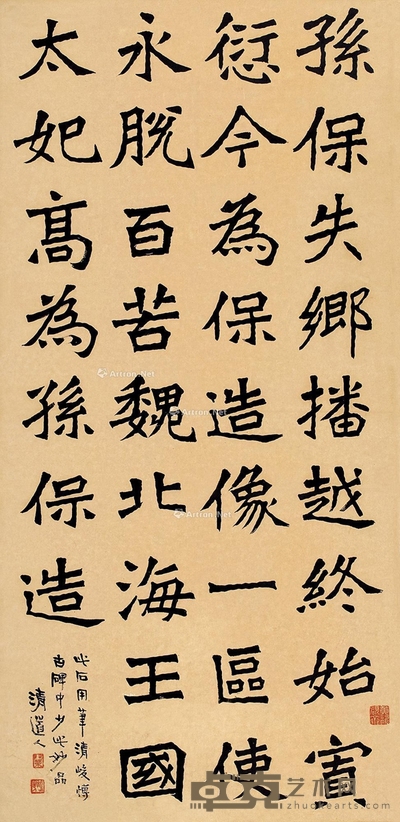 孫保失鄉播越終始寅
愆今為保造像一區使
永脫百苦魏北海王國
太妃高為孫保造
此石用筆清峻惇
古碑中少此妙品
清道人
Artron.Net
Artron.Net
卓克艺术网
zhuokearts.com